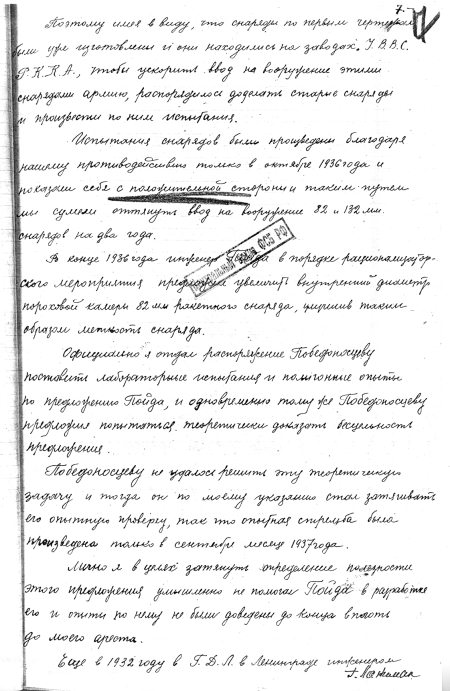 7.
Поэтому имея в виду, что снаряды по первым чертежам
были уже изготовлены и они находились на заводах. У.В.В.С.
Р.К.К.А., чтобы ускорить ввод на вооружение этими
снарядами армию, распорядилось доделать старые снаряды
и произвести по ним испытания.
Испытания снарядов были произведены благодаря
нашему противодействию только в октябре 1936 года и
показали себя с положительной стороны и таким путем
мы сумели оттянуть ввод на вооружение 82 и 132 мм.
снарядов на два года.
В конце 1936 года инженер Пойда в порядке рационализатор-
ского мероприятия предложил увеличить внутренний диаметр
пороховой камеры 82 мм ракетного снаряда, таким
образом меткость снаряда.
Официально я отдал распоряжение Победоносцеву
поставить лабораторные испытания и полигонные опыты
по предложению Пойда, и одновременно тому же Победоносцеву
предложил попытаться теоретически доказать
предложения.
Победоносцеву не удалось решить эту теоретическую
задачу и тогда он по моему указанию стал затягивать
его опытную проверку, так что опытная стрельба была
произведена только в сентябре месяце 1937 года.
Лично я в целях затянуть определение полезности
этого предложения умышленно не помогал Пойда в разработке
его и опыты по нему не были доведены до конца вплоть
до моего ареста.
Еще в 1932 году в Г.Д.Л. в Ленинграде инженером
Г. Лангемак
ФСБ РФ